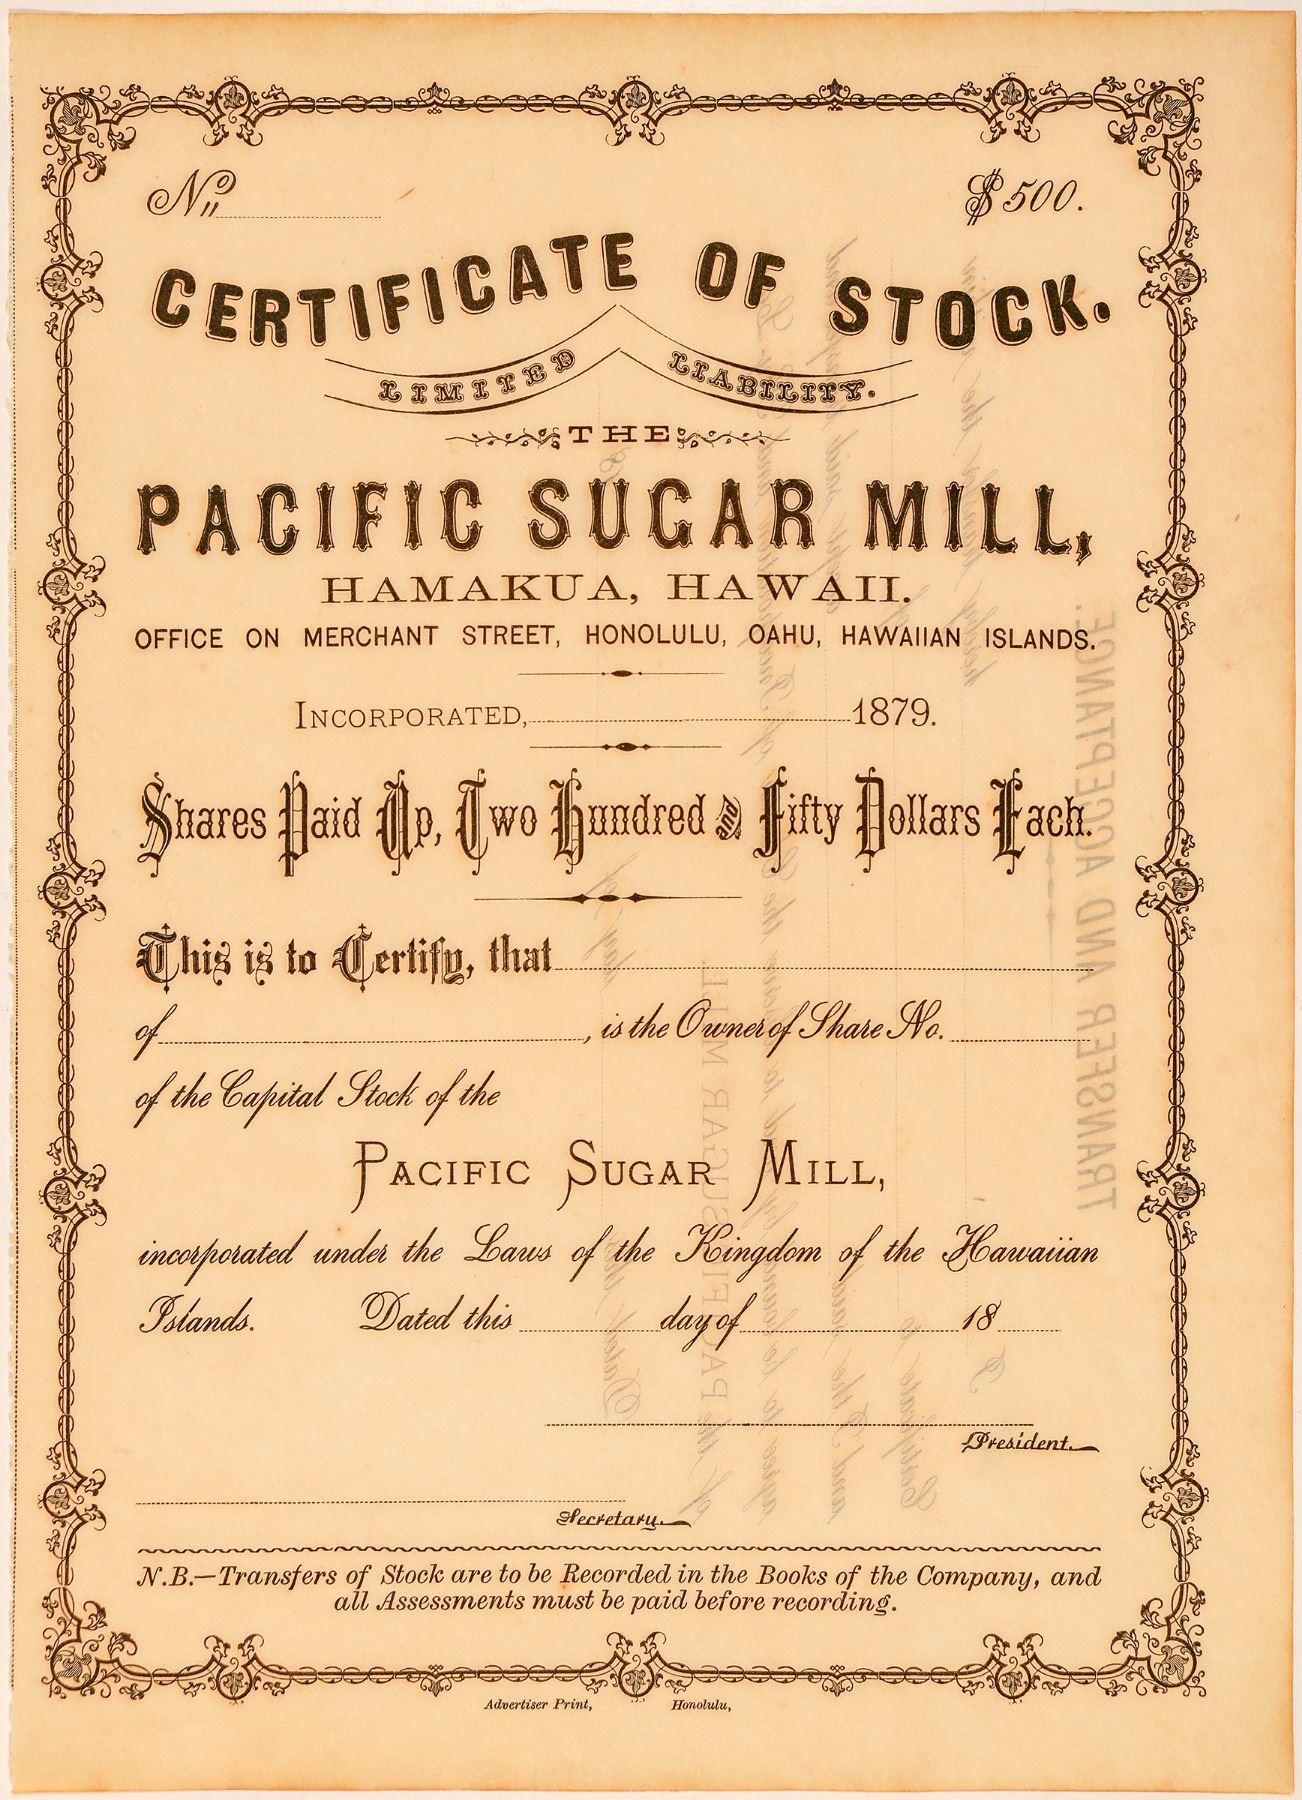 No.
$500.
CERTIFICATE OF STOCK.
LIMITED LIABILITY.
THE
PACIFIC SUGAR MILL,
HAMAKUA, HAWAII.
OFFICE ON MERCHANT STREET, HONOLULU, OAHU, HAWAIIAN ISLANDS.
INCORPORATED, 1879.
Shares Paid Up, Two Hundred and Fifty Dollars Each.
This is to Certify, that
of , is the Owner of Share No.
of the Capital Stock of the
PACIFIC SUGAR MILL,
incorporated under the Laws of the Kingdom of the Hawaiian
Islands. Dated this day of 18
President.
Secretary.
N.B.—Transfers of Stock are to be Recorded in the Books of the Company, and
all Assessments must be paid before recording.
Advertiser Print, Honolulu,
TRANSFER AND ACCEPTANCE.